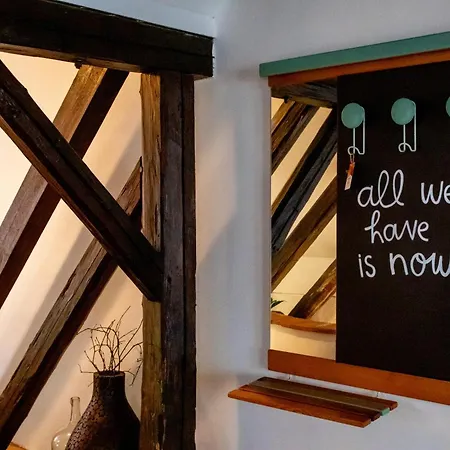 all we
have
is now